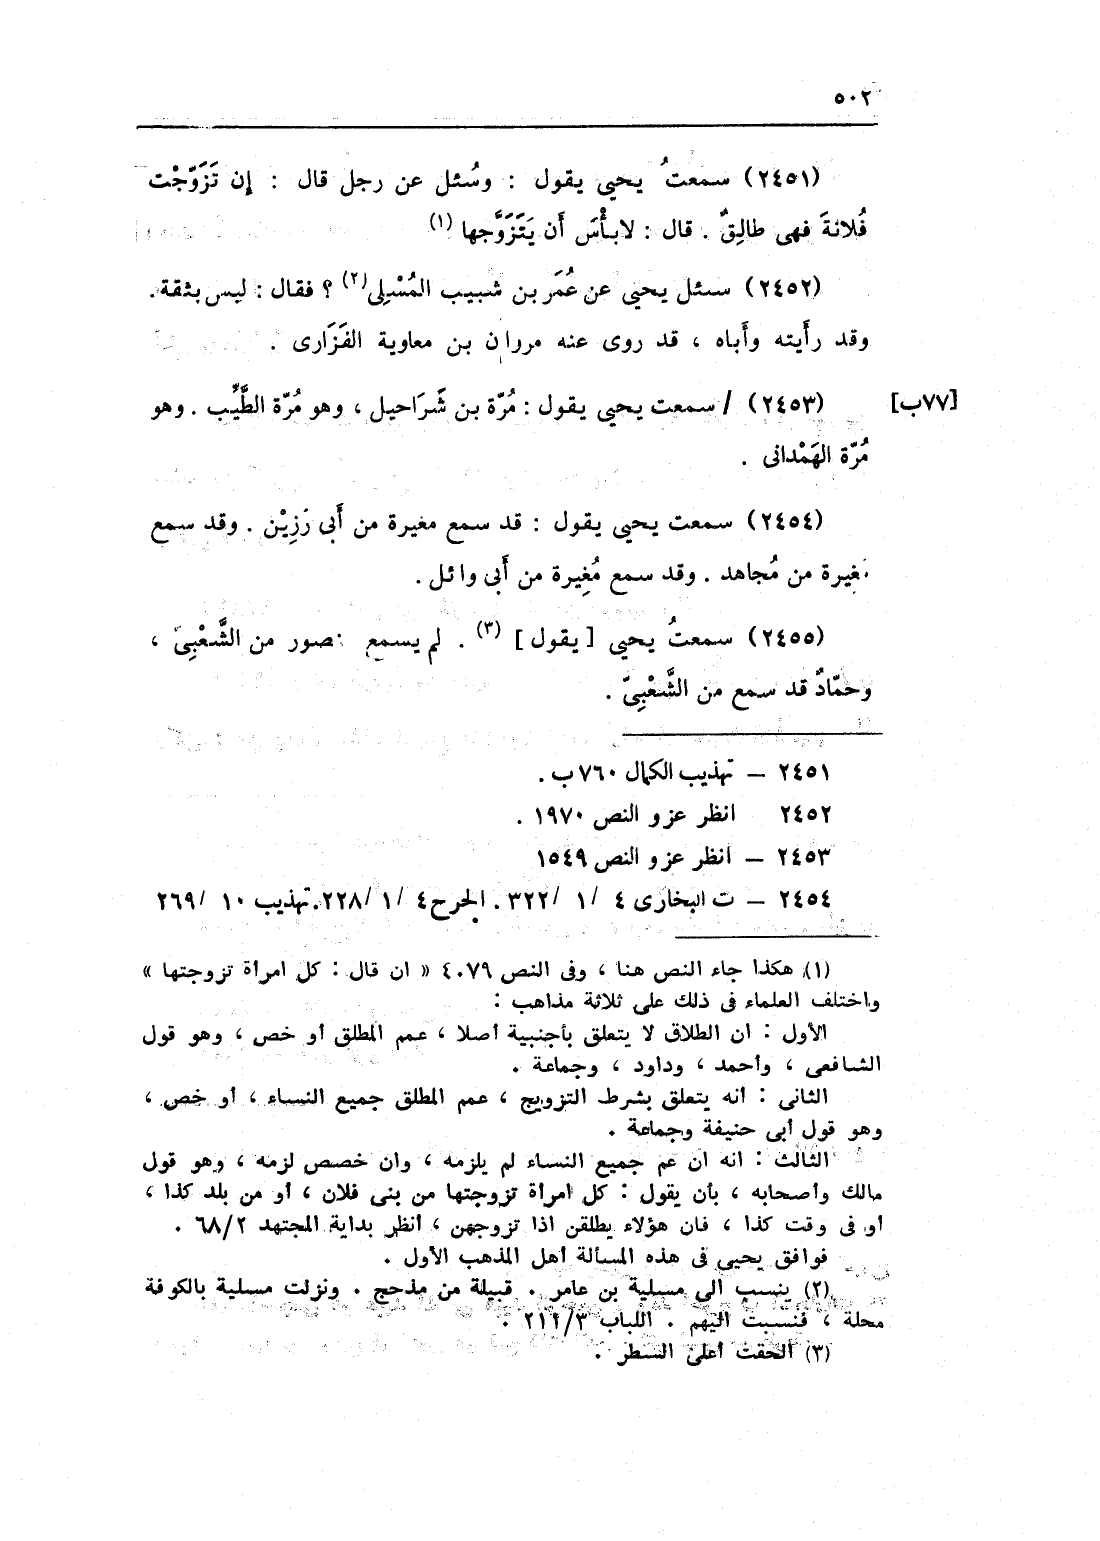 ٥٠٢
(٢٤٥١) سمعتُ يحيى يقول : وسُئل عن رجل قال : إن تَزَوَّجْت
فُلانةَ فهى طالِقٌ . قال : لابأْسَ أَن يَتَزَوَّجها (١)
(٢٤٥٢) سئل يحيى عن عُمَر بن شبيب المُسْلِى(٢) ؟ فقال : ليس بثقة .
وقد رأَيته وأَباه ، قد روى عنه مروان بن معاوية الفَزَارى .
[٧٧ب] (٢٤٥٣) / سمعت يحيى يقول : مُرّة بن شَرَاحيل ، وهو مُرّة الطَّيِّب . وهو
مُرّة الهَمْدانى .
(٢٤٥٤) سمعت يحيى يقول : قد سمع مغيرة من أَبى رَزِيْن . وقد سمع
مغيرة من مُجاهد . وقد سمع مُغِيرة من أَبى وائل .
(٢٤٥٥) سمعتُ يحيى [ يقول ] (٣) . لم يسمع منصور من الشَّعْبِىّ ،
وحمّادٌ قد سمع من الشَّعْبِىّ .
٢٤٥١ – تهذيب الكمال ٧٦٠ب .
٢٤٥٢ انظر عزو النص ١٩٧٠ .
٢٤٥٣ – انظر عزو النص ١٥٤٩
٢٤٥٤ – ت البخارى ٤ /١ /٣٢٢ . الجرح ٤ /١ /٢٢٨. تهذيب ١٠ /٢٦٩
(١) هكذا جاء النص هنا ، وفى النص ٤٠٧٩ « ان قال : كل امرأة تزوجتها »
واختلف العلماء فى ذلك على ثلاثة مذاهب :
الأول : ان الطلاق لا يتعلق بأجنبية أصلا ، عمم المطلق أو خص ، وهو قول
الشافعى ، وأحمد ، وداود ، وجماعة .
الثانى : أنه يتعلق بشرط التزويج ، عمم المطلق جميع النساء ، أو خص ،
وهو قول أبى حنيفة وجماعة .
الثالث : انه ان عم جميع النساء لم يلزمه ، وان خصص لزمه ، وهو قول
مالك وأصحابه ، بأن يقول : كل امرأة تزوجتها من بنى فلان ، أو من بلد كذا ،
أو فى وقت كذا ، فان هؤلاء يطلقن اذا تزوجهن ، أنظر بداية المجتهد ٦٨/٢ .
فوافق يحيى فى هذه المسألة أهل المذهب الأول .
(٢) ينسب الى مسلية بن عامر . قبيلة من مذحج . ونزلت مسلية بالكوفة
محلة ، فنسبت اليهم . اللباب ٢١١/٣ .
(٣) ألحقت أعلى السطر .